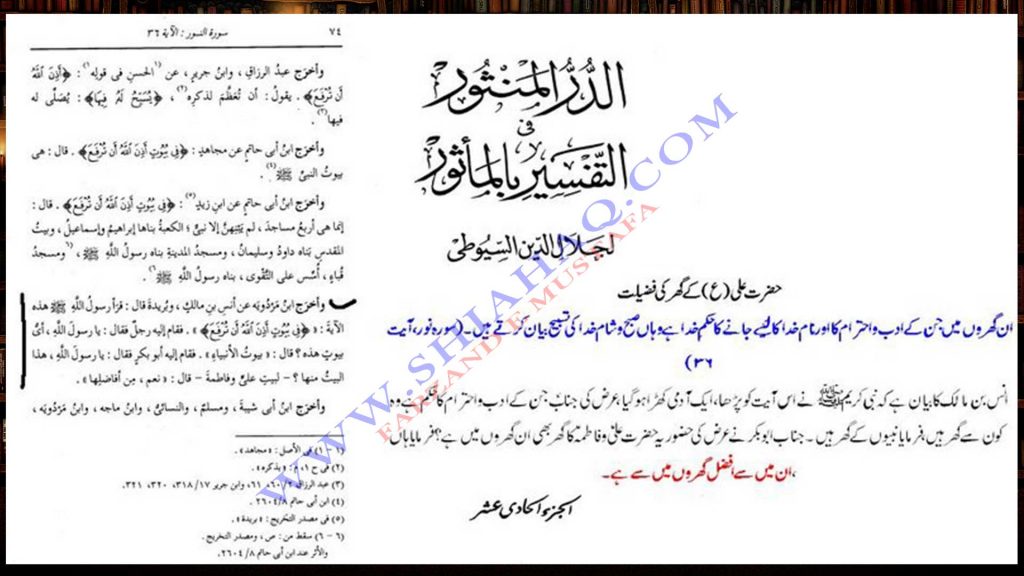 ٧٤
سورة النور : الآية ٣٦
وأخرج عبدُ الرزاقِ ، وابنُ جريرٍ ، عن (١) الحسنِ فى قولِه (١) : ﴿أَذِنَ اللَّهُ
أَن تُرْفَعَ﴾ . يقولُ : أن تُعَظَّمَ لذكرِه (٢) ، ﴿يُسَبِّحُ لَهُ فِيهَا﴾ : يُصَلَّى له
فيها (٣) .
وأخرَج ابنُ أبى حاتمٍ عن مجاهدٍ : ﴿فِى بُيُوتٍ أَذِنَ اللَّهُ أَن تُرْفَعَ﴾ . قال : هى
بيوتُ النبىِّ ﷺ (٤) .
وأخرَج ابنُ أبى حاتمٍ عن ابنِ زيدٍ (٥) : ﴿فِى بُيُوتٍ أَذِنَ اللَّهُ أَن تُرْفَعَ﴾ . قال :
إنما هى أربعُ مساجدَ ، لم يَبْنِهنَّ إلا نبىٌّ ؛ الكعبةُ بناها إبراهيمُ وإسماعيلُ ، وبيتُ
المقدسِ بَناه داودُ وسليمانُ ، ومسجدُ المدينةِ بناه رسولُ اللَّهِ ﷺ ، (٦) ومسجدُ
قُباءٍ ، أُسِّس على التَّقْوى ، بناه رسولُ اللَّهِ ﷺ (٦) .
وأخرَج ابنُ مَرْدُويَه عن أنسِ بنِ مالكٍ ، وبُريدةَ قال : قرَأ رسولُ اللَّهِ ﷺ هذه
الآيةَ : ﴿فِى بُيُوتٍ أَذِنَ اللَّهُ أَن تُرْفَعَ﴾ . فقام إليه رجلٌ فقال : يا رسولَ اللَّهِ ، أىُّ
بيوتٍ هذه ؟ قال : « بيوتُ الأنبياءِ » . فقام إليه أبو بكرٍ فقال : يا رسولَ اللَّهِ ، هذا
البيتُ منها ؟ - لبيتِ علىٍّ وفاطمةَ - قال : « نعم ، مِن أفاضلِها » .
وأخرَج ابنُ أبى شيبةَ ، ومسلمٌ ، والنسائىُّ ، وابنُ ماجه ، وابنُ مَرْدُويَه ،
(١ - ١) فى الأصل : « مجاهد » .
(٢) فى ح ١ ، م : « بذكره » .
(٣) عبد الرزاق ٢/ ٦٠، ٦١، وابن جرير ١٧/ ٣١٨، ٣٢٠، ٣٢١.
(٤) ابن أبى حاتم ٨/ ٢٦٠٤.
(٥) فى مصدر التخريج : « بريدة » .
(٦ - ٦) سقط من : ص ، ومصدر التخريج .
والأثر عند ابن أبى حاتم ٨/ ٢٦٠٤.
الدُّرُّ المَنْثُور
فى
التَّفْسِيرِ بِالمَأْثُور
لجَلَالِ الدِّين السِّيُوطِىْ
حضرت علی (ع) کے گھر کی فضیلت
ان گھروں میں جن کے ادب و احترام کا اور نام خدا کا لئیے جانے کا حکم خدا ہے وہاں صبح و شام خدا کی تسبیح بیان کرتے ہیں۔ (سورہ نور، آیت
۳۶)
انس بن مالک کا بیان ہے کہ نبی کریم ﷺ نے اس آیت کو پڑھا، ایک آدمی کھڑا ہو گیا عرض کی جناب جن کے ادب و احترام کا حکم ہے وہ
کون سے گھر ہیں، فرمایا نبیوں کے گھر ہیں۔ جناب ابو بکر نے عرض کی حضور یہ حضرت علیؑ و فاطمہؑ کا گھر بھی ان گھروں میں ہے؟ فرمایا ہاں
،ان میں سے افضل گھروں میں سے ہے۔
الجزء الحادى عشر
WWW.SHIAHAQ.COM
FARZAND E MUSTAFA